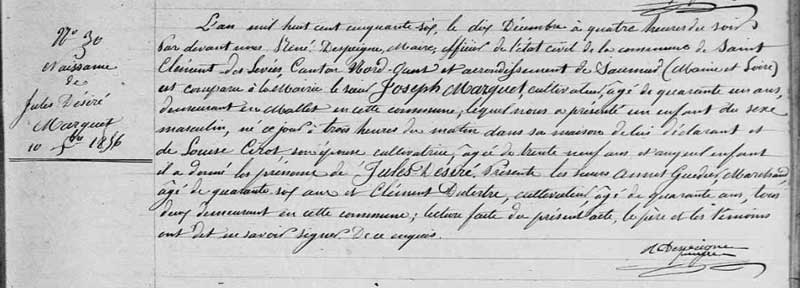 N° 30
Naissance
de
Jules Désiré
Marquet
10 Xbre 1856
L'an mil huit cent cinquante six, le dix Décembre à quatre heures du soir
Par devant nous René Despeigne, Maire, officier de l'état civil de la commune de Saint
Clément des Levées, Canton Nord-Ouest et arrondissement de Saumur (Maine et Loire)
est comparu à la Mairie le sieur Joseph Marquet cultivateur, âgé de quarante un ans,
demeurant en cette commune, lequel nous a présenté un enfant du sexe
masculin, né ce jour à trois heures du matin dans sa maison de lui déclarant et
de Louise Cirot son épouse cultivatrice, âgée de trente neuf ans, et auquel enfant
il a donné les prénoms de Jules Désiré. Présents les sieurs Aimé Marchand,
âgé de quarante six ans et Clément Delestre, cultivateur, âgé de quarante ans, tous
deux demeurant en cette commune; lecture faite du présent acte, le père et les témoins
ont dit ne savoir signer. De ce enquis.
R Despeigne